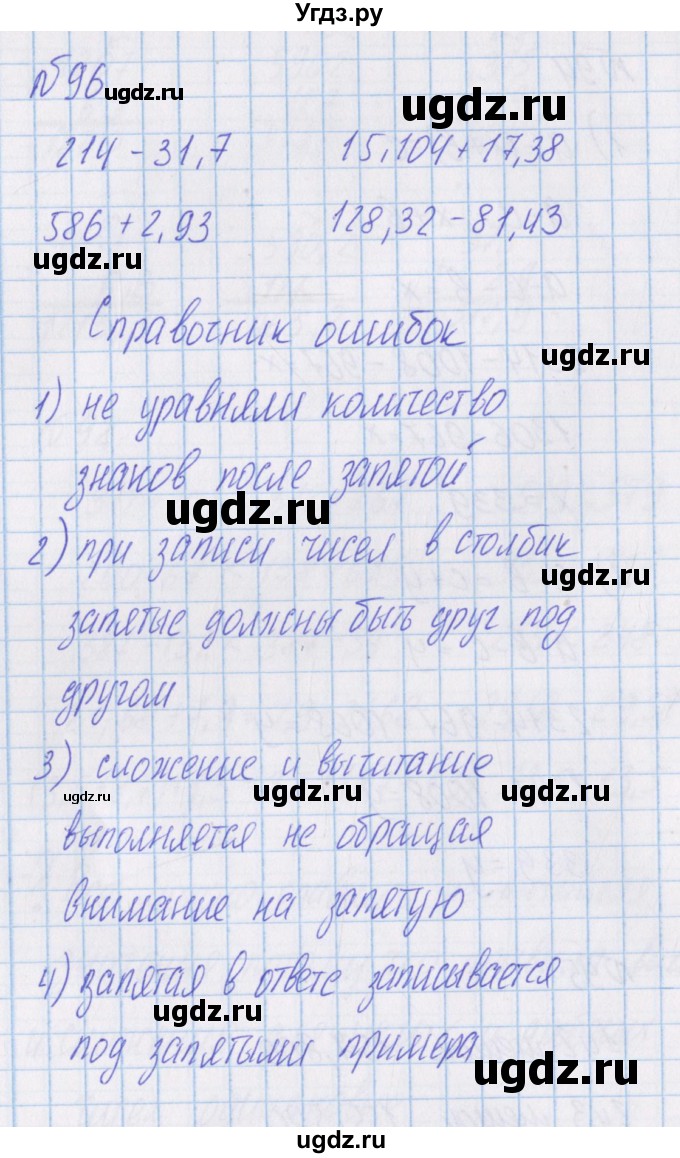 Угдз.ру
№96
ugdz.ru
ugdz.ru
214 - 31,7 15,104 + 17,38
586 + 2,93 128,32 - 81,43
ugdz.ru
Справочник ошибок
ugdz.ru
1) не уравняли количество
знаков после запятой
ugdz.ru
2) при записи чисел в столбик
ugdz.ru
запятые должны быть друг под
другом
3) сложение и вычитание
ugdz.ru ugdz.ru ugdz.ru
выполняется не обращая
внимание на запятую
4) запятая в ответе записывается
ugdz.ru
под запятыми примера
ugdz.ru
ugdz.ru